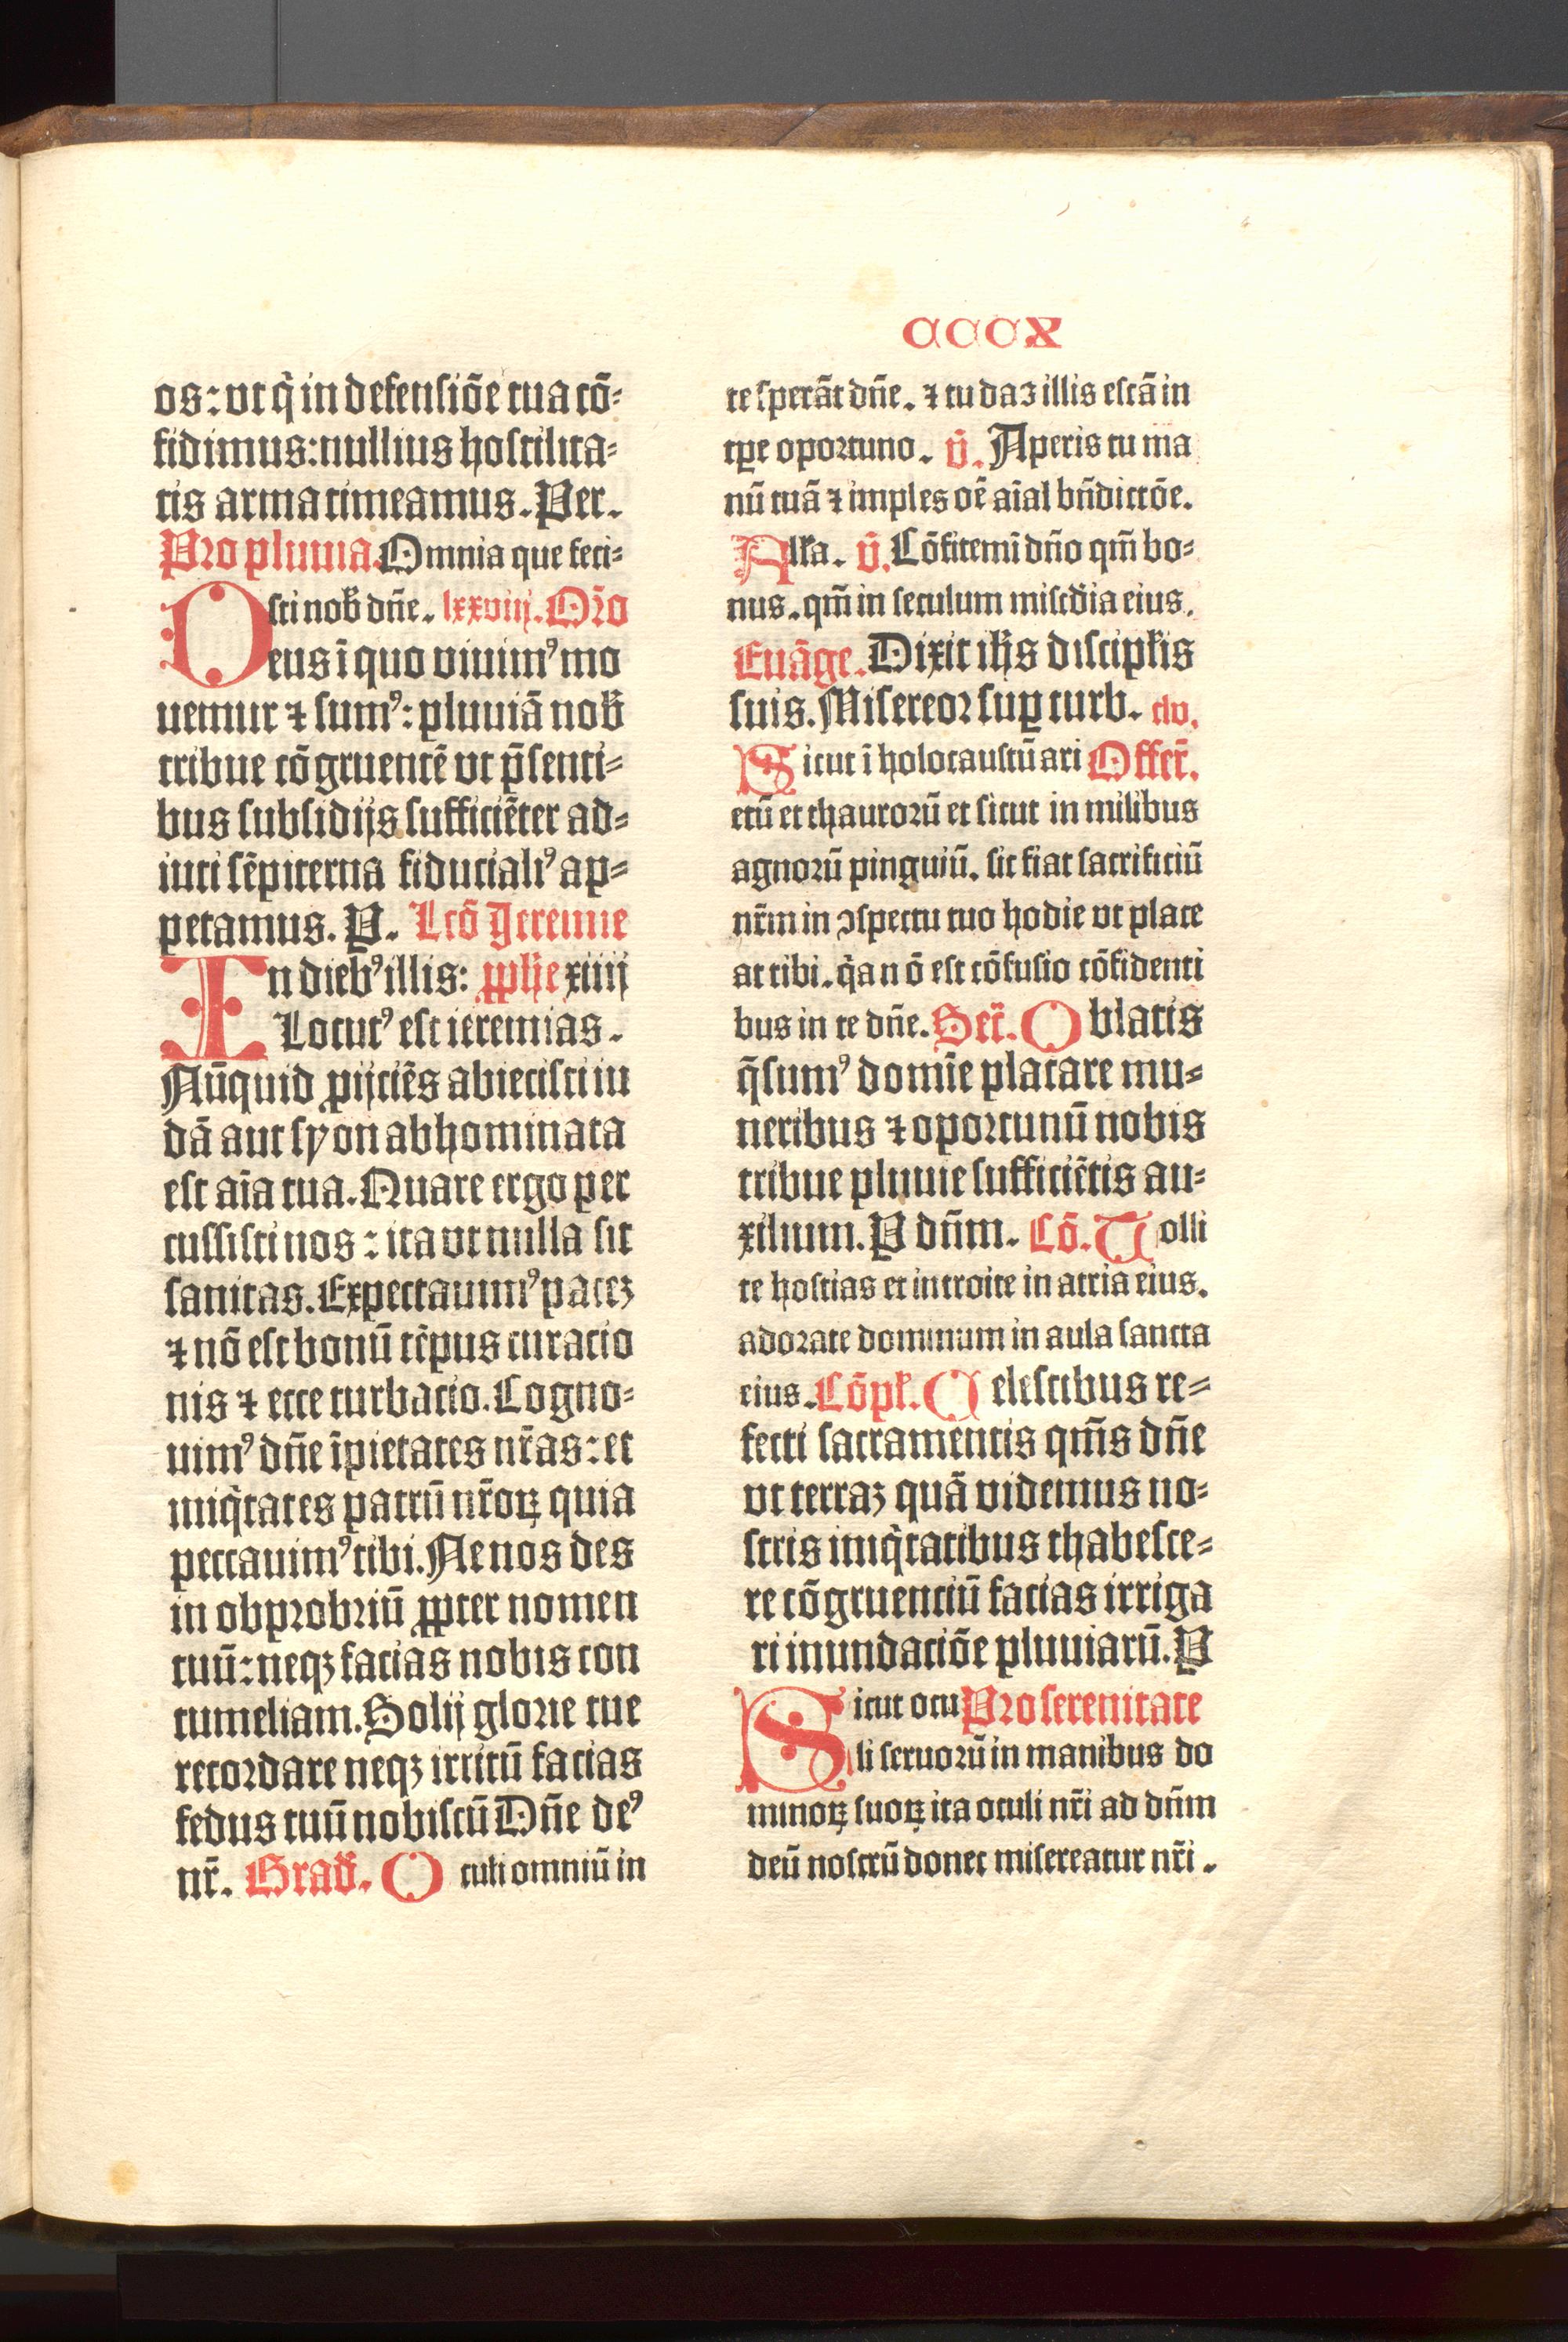 CCCX
os: vt q̃ in defensiõe tua cõ⸗
fidimus: nullius hostilita⸗
tis arma timeamus. Per.
Pro pluuia. Omnia que feci⸗
sti nob̃ dñe. lxxviij. Oro
Deus ĩ quo viuimꝰ mo
uemur ⁊ sumꝰ: pluuiã nob̃
tribue cõgruentẽ vt p̃senti⸗
bus subsidijs sufficiẽter ad⸗
iuti sẽpiterna fiducialiꝰ ap⸗
petamus. P. Lcõ Jeremie
In diebꝰ illis: ꝓphe xiiij
Locutꝰ est ieremias.
Nũquid ꝓijciẽs abiecisti iu
dã aut syon abhominata
est aĩa tua. Quare ergo per
cussisti nos: ita vt nulla sit
sanitas. Expectauimꝰ pacez
⁊ nõ est bonũ tẽpus curacio
nis ⁊ ecce turbacio. Cogno⸗
uimꝰ dñe ĩpietates nr̃as: et
iniq̃tates patrũ nr̃oꝝ quia
peccauimꝰ tibi. Ne nos des
in obprobriũ ꝓpter nomen
tuũ: neqꝫ facias nobis con
tumeliam. Solij glorie tue
recordare neqꝫ irritũ facias
fedus tuũ nobiscũ Dñe deꝰ
nr̃. Grad̃. Oculi omniũ in
te sperãt dñe. ⁊ tu daꝫ illis escã in
tꝑe oportuno. ṽ. Aperis tu ma
nũ tuã ⁊ imples oẽ aĩal bñdictõe.
Alľa. ṽ. Cõfitemĩ dño qm̃ bo⸗
nus. qm̃ in seculum misc̃dia eius.
Euãge. Dixit ihs̃ discipľis
suis. Misereor suꝑ turb. clv.
Sicut ĩ holocaustũ ari Offer̃.
etũ et thaurorũ et sicut in milibus
agnorũ pinguiũ. sic fiat sacrificiũ
nr̃m in ↄspectu tuo hodie vt place
at tibi. q̃a nõ est cõfusio cõfidenti
bus in te dñe. Secr̃. Oblatis
q̃sumꝰ domĩe placare mu⸗
neribus ⁊ oportunũ nobis
tribue pluuie sufficiẽtis au⸗
xilium. P dñm. Cõ. Tolli
te hostias et introite in atria eius.
adorate dominum in aula sancta
eius. Cõpľ. Celestibus re⸗
fecti sacramentis qm̃s dñe
vt terraꝫ quã videmus no⸗
stris iniq̃tatibus thabesce⸗
re cõgruenciũ facias irriga
ri inundaciõe pluuiarũ. P
Sicut ocu Pro serenitate
li seruorũ in manibus do
minoꝝ suoꝝ ita oculi nr̃i ad dñm
deũ nostrũ donec misereatur nr̃i.